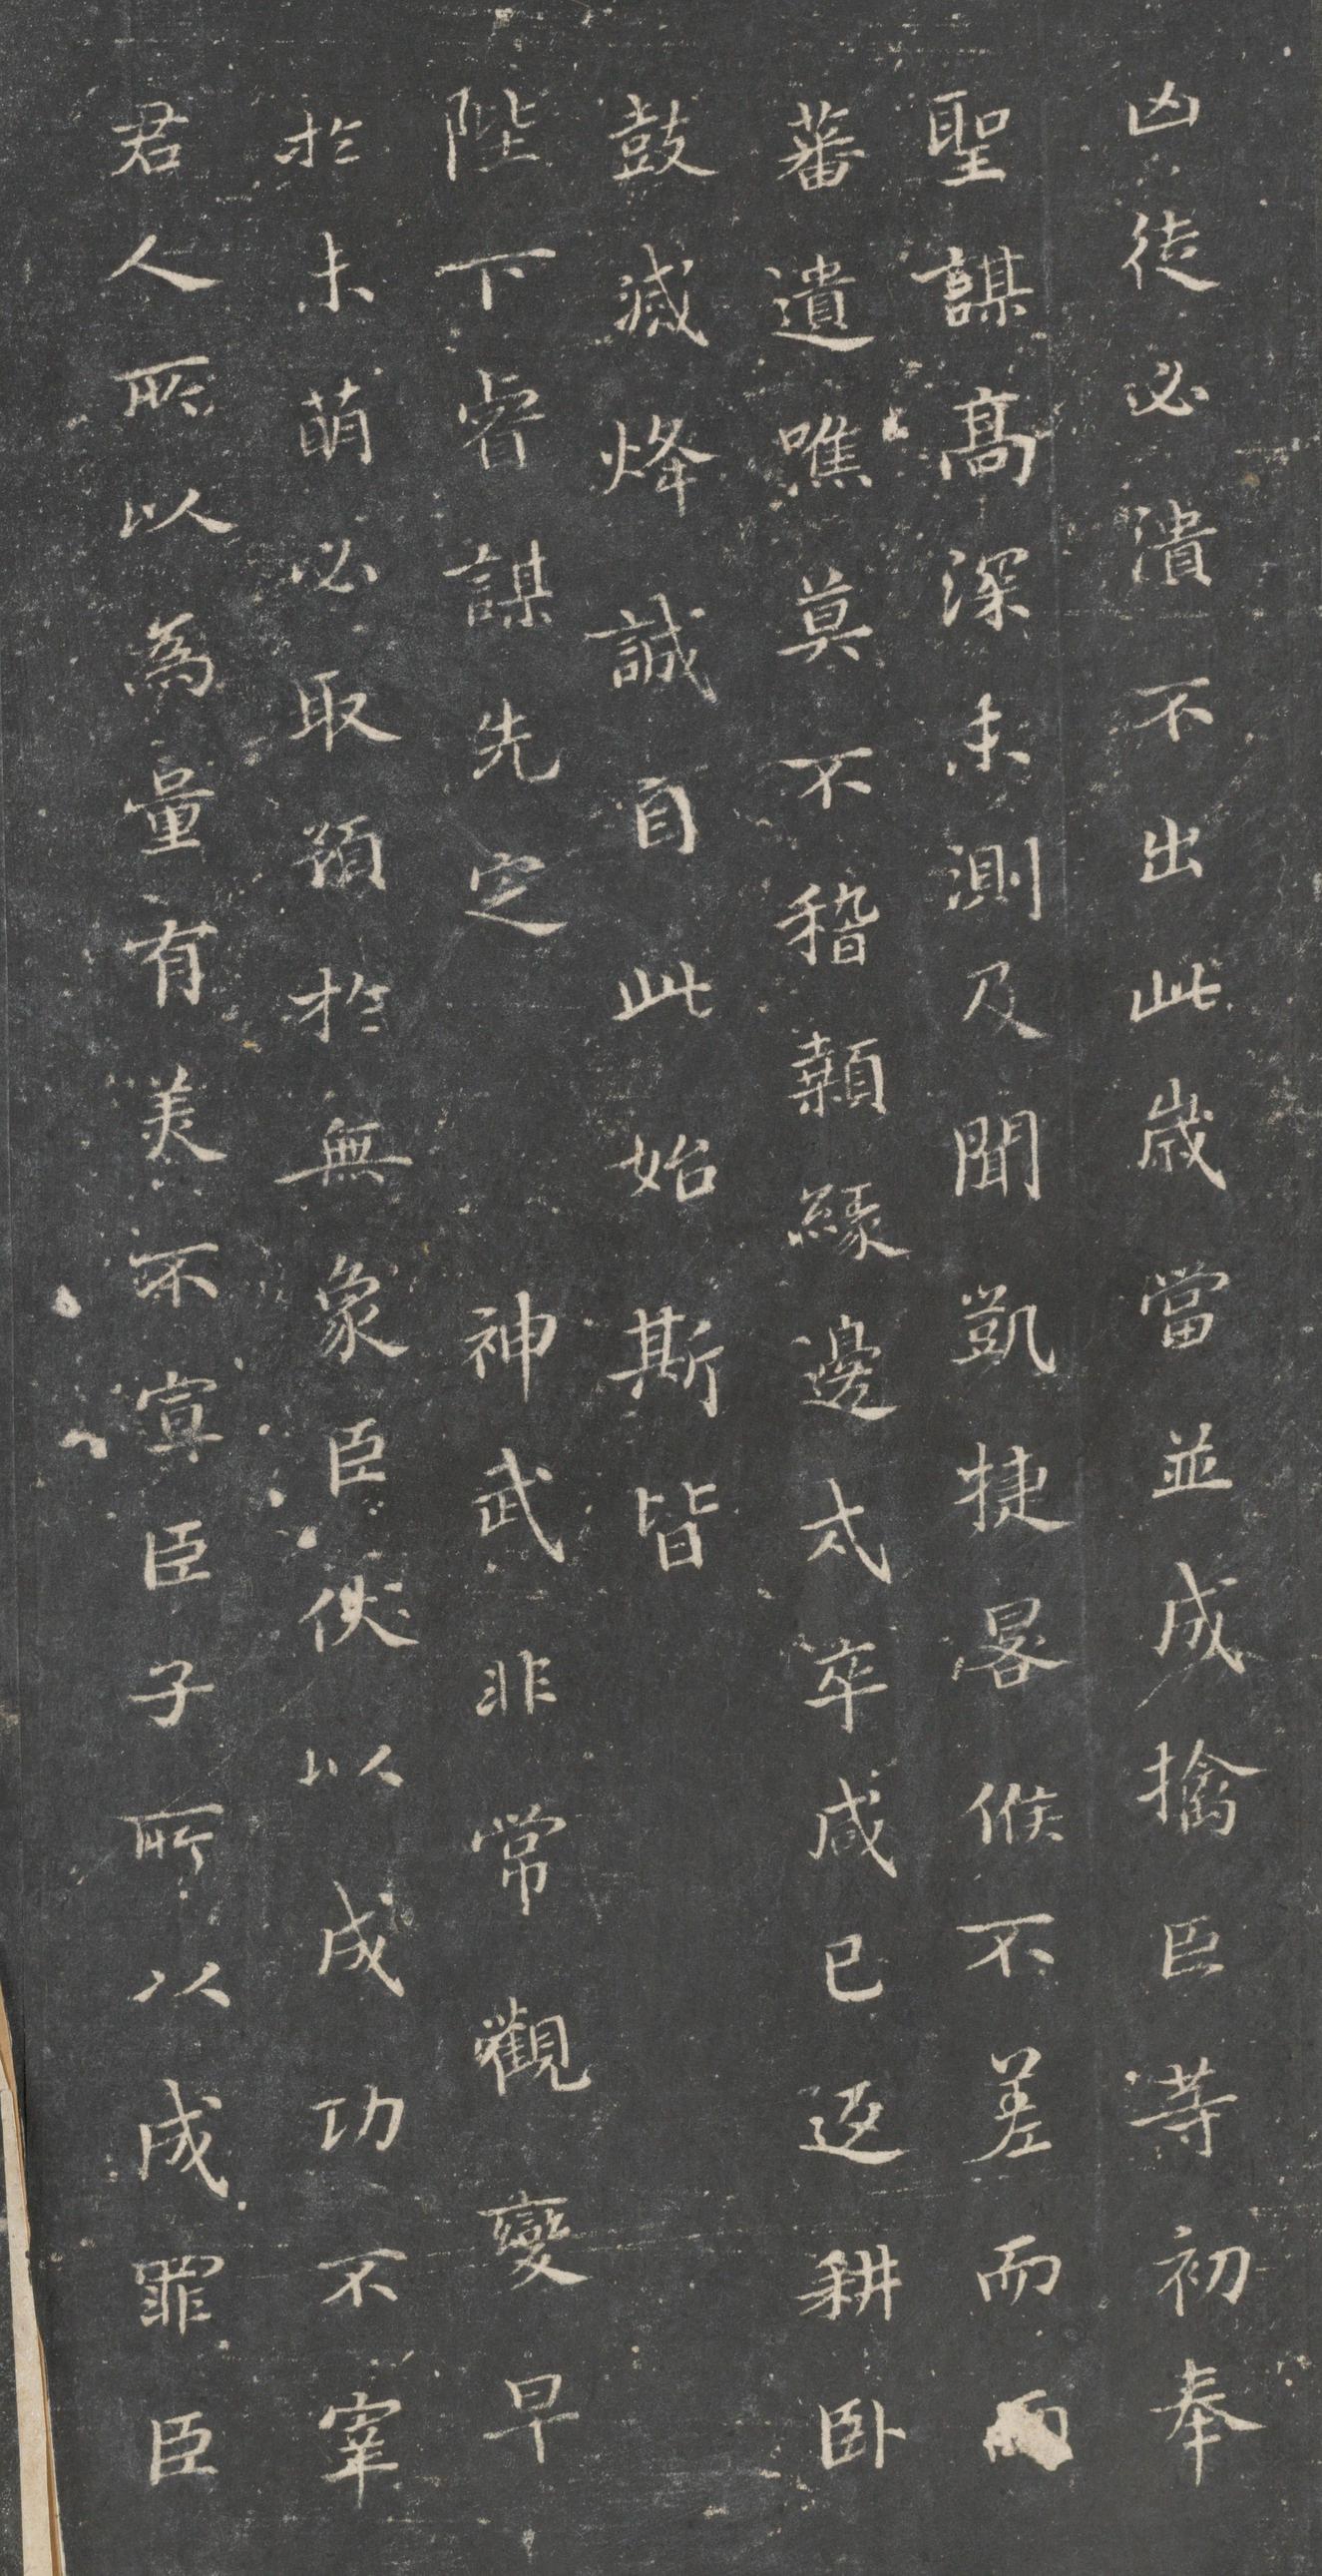 凶徒必潰不出此歲當並成擒臣等初奉
聖謀高深未測及聞凱捷晷候不差而兩
蕃遺噍莫不稽顙緣邊戍卒咸已返耕臥
鼓滅烽誠自此始斯皆
陛下睿謀先定　神武非常觀變早
於未萌必取預於無象臣伏以成功不宰
君人所以為量有美不宣臣子所以成罪臣